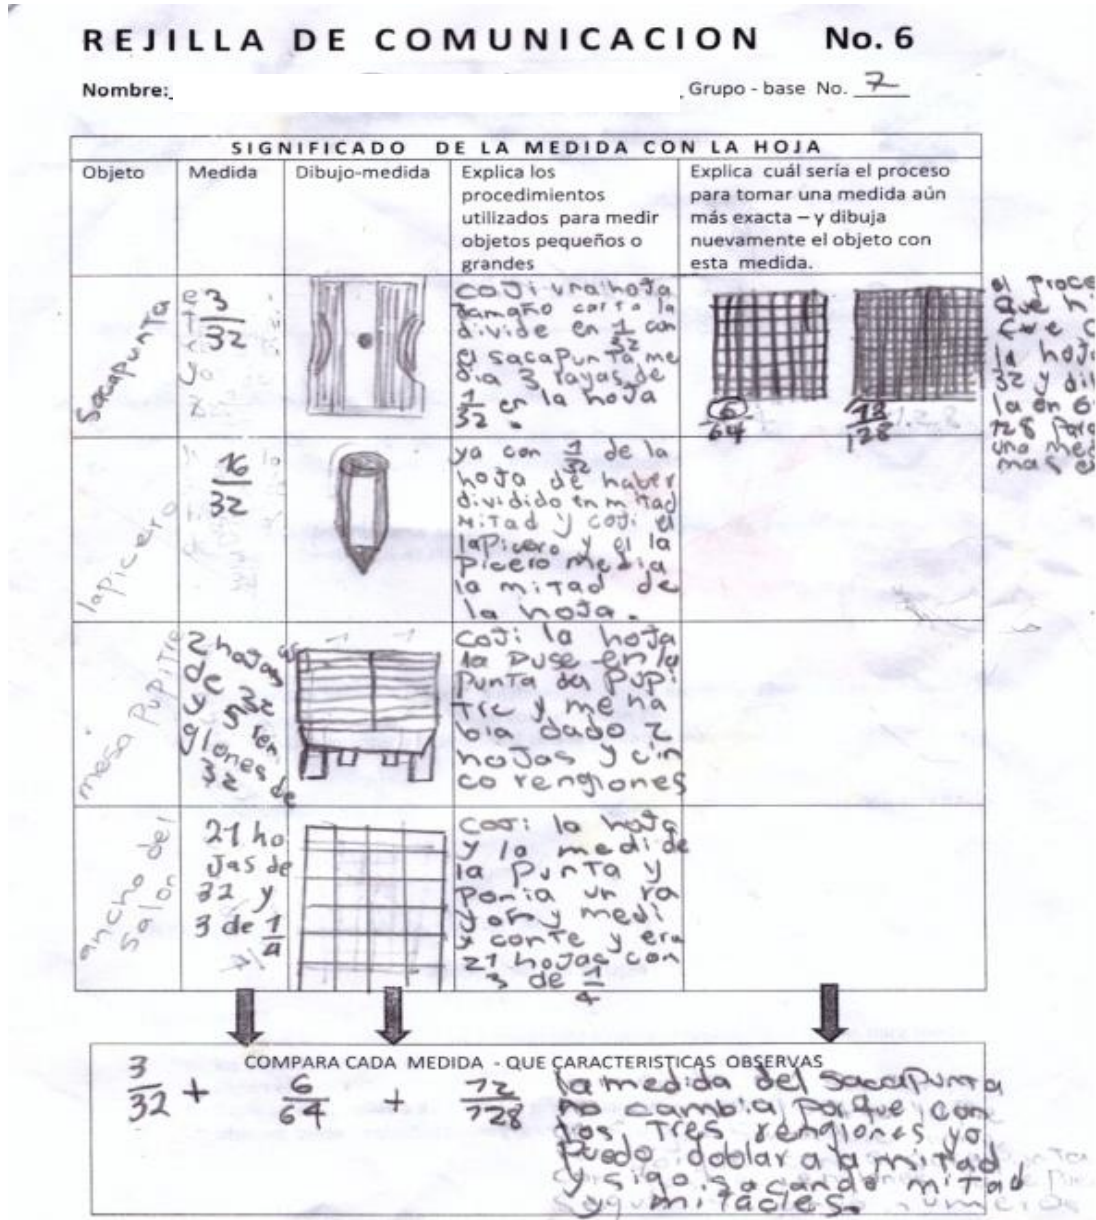 REJILLA DE COMUNICACION No. 6
Nombre: Grupo - base No. 7
SIGNIFICADO DE LA MEDIDA CON LA HOJA
Objeto
Medida
Dibujo-medida
Explica los
procedimientos
utilizados para medir
objetos pequeños o
grandes
Explica cuál sería el proceso
para tomar una medida aún
más exacta – y dibuja
nuevamente el objeto con
esta medida.
sacapunta
3
32
coji una hoja
tamaño carta la
divide en 1/32 con
el sacapunta me
dia 3 rayas de
1/32 en la hoja
6
64
12
128
el proce
que hi
la hoj
32 y
la en 6
128 para
una med
mas e
lapicero
16
32
ya con 1/32 de la
hoja de haber
dividido en mitad
mitad y coji el
lapicero y el la
picero media
la mitad de
la hoja.
mesa pupitre
2 hojas
de 32
y 5 ren
glones de
32
coji la hoja
la puse en la
punta del pupi
tre y me ha
bia dado 2
hojas y cin
co renglones
ancho del
salon
21 ho
jas de
32 y
3 de 1/4
coji la hoja
y la medi de
la punta y
ponia un ra
y medi
y conte y era
21 hojas con
3 de 1/4
COMPARA CADA MEDIDA - QUE CARACTERISTICAS OBSERVAS
3/32 + 6/64 + 12/128
la medida del sacapunta
no cambia porque con
los tres renglones yo
puedo doblar a a mitad
y sigo sacando mitad
y mitades.